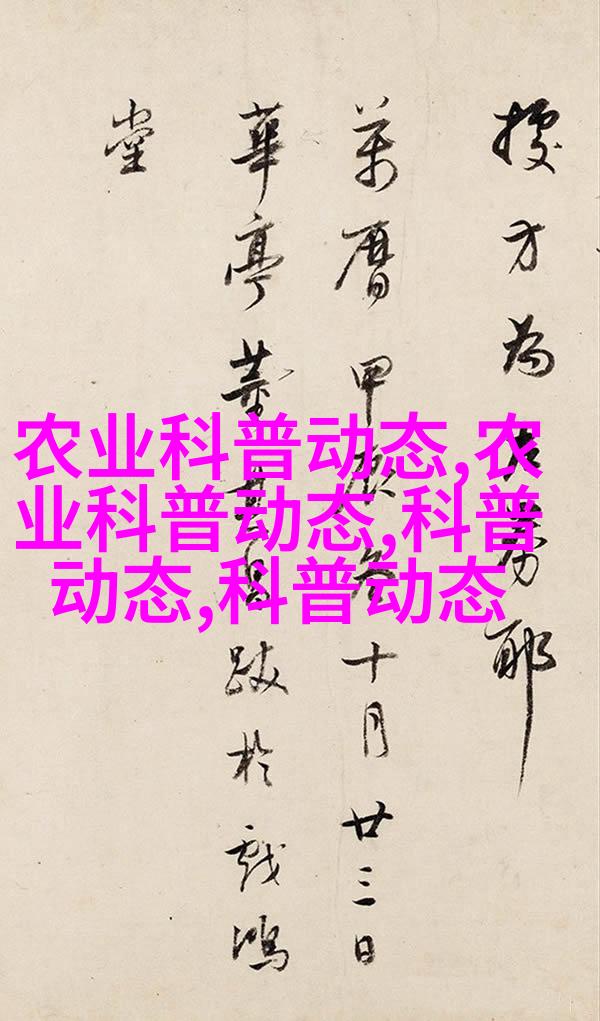 方為勞耶
萬曆甲辰冬十月廿三日
華亭董其昌跋於戲鴻
堂
农业科普动态,农
业科普动态,科普
动态,科普动态